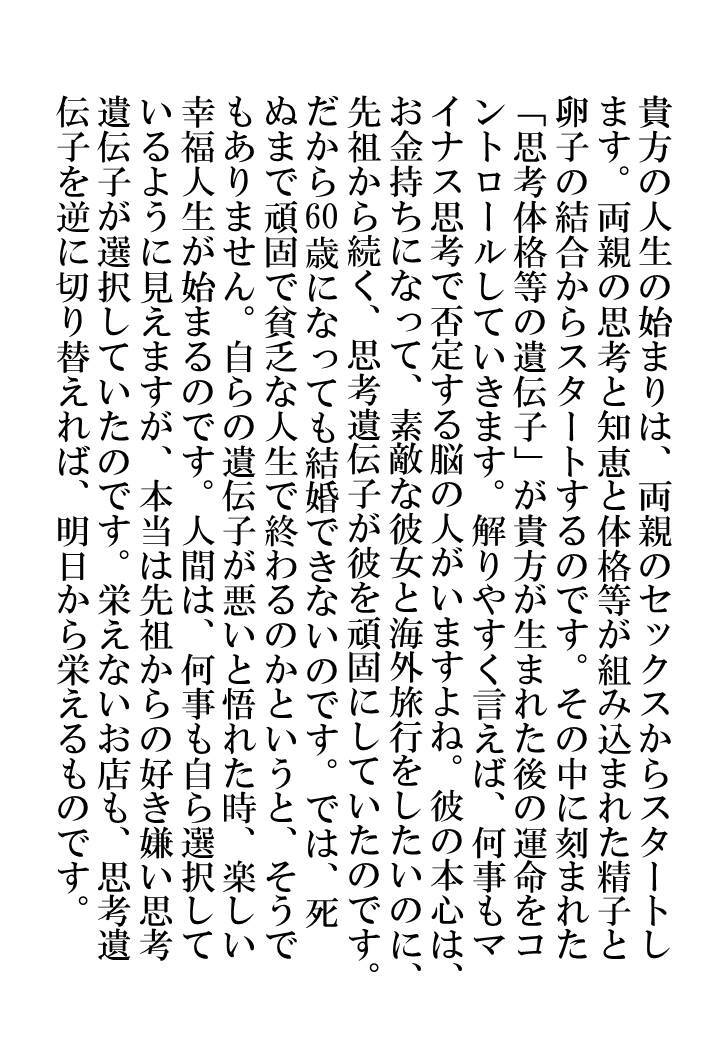 貴方の人生の始まりは、両親のセックスからスタートし
ます。両親の思考と知恵と体格等が組み込まれた精子と
卵子の結合からスタートするのです。その中に刻まれた
「思考体格等の遺伝子」が貴方が生まれた後の運命をコ
ントロールしていきます。解りやすく言えば、何事もマ
イナス思考で否定する脳の人がいますよね。彼の本心は、
お金持ちになって、素敵な彼女と海外旅行をしたいのに、
先祖から続く、思考遺伝子が彼を頑固にしていたのです。
だから60歳になっても結婚できないのです。では、死
ぬまで頑固で貧乏な人生で終わるのかというと、そうで
もありません。自らの遺伝子が悪いと悟れた時、楽しい
幸福人生が始まるのです。人間は、何事も自ら選択して
いるように見えますが、本当は先祖からの好き嫌い思考
遺伝子が選択していたのです。栄えないお店も、思考遺
伝子を逆に切り替えれば、明日から栄えるものです。